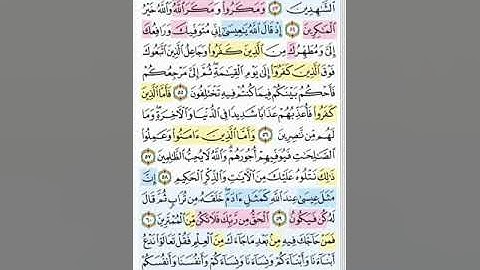 ٱلشَّٰهِدِينَ ٥٣ وَمَكَرُوا۟ وَمَكَرَ ٱللَّهُ وَٱللَّهُ خَيْرُ
ٱلْمَٰكِرِينَ ٥٤ إِذْ قَالَ ٱللَّهُ يَٰعِيسَىٰٓ إِنِّى مُتَوَفِّيكَ وَرَافِعُكَ
إِلَىَّ وَمُطَهِّرُكَ مِنَ ٱلَّذِينَ كَفَرُوا۟ وَجَاعِلُ ٱلَّذِينَ ٱتَّبَعُوكَ
فَوْقَ ٱلَّذِينَ كَفَرُوٓا۟ إِلَىٰ يَوْمِ ٱلْقِيَٰمَةِ ثُمَّ إِلَىَّ مَرْجِعُكُمْ
فَأَحْكُمُ بَيْنَكُمْ فِيمَا كُنتُمْ فِيهِ تَخْتَلِفُونَ ٥٥ فَأَمَّا ٱلَّذِينَ
كَفَرُوا۟ فَأُعَذِّبُهُمْ عَذَابًا شَدِيدًا فِى ٱلدُّنْيَا وَٱلْءَاخِرَةِ وَمَا
لَهُم مِّن نَّٰصِرِينَ ٥٦ وَأَمَّا ٱلَّذِينَ ءَامَنُوا۟ وَعَمِلُوا۟
ٱلصَّٰلِحَٰتِ فَيُوَفِّيهِمْ أُجُورَهُمْ وَٱللَّهُ لَا يُحِبُّ ٱلظَّٰلِمِينَ ٥٧
ذَٰلِكَ نَتْلُوهُ عَلَيْكَ مِنَ ٱلْءَايَٰتِ وَٱلذِّكْرِ ٱلْحَكِيمِ ٥٨ إِنَّ
مَثَلَ عِيسَىٰ عِندَ ٱللَّهِ كَمَثَلِ ءَادَمَ خَلَقَهُۥ مِن تُرَابٍ ثُمَّ قَالَ
لَهُۥ كُن فَيَكُونُ ٥٩ ٱلْحَقُّ مِن رَّبِّكَ فَلَا تَكُن مِّنَ ٱلْمُمْتَرِينَ ٦٠
فَمَنْ حَآجَّكَ فِيهِ مِنۢ بَعْدِ مَا جَآءَكَ مِنَ ٱلْعِلْمِ فَقُلْ تَعَالَوْا۟ نَدْعُ
أَبْنَآءَنَا وَأَبْنَآءَكُمْ وَنِسَآءَنَا وَنِسَآءَكُمْ وَأَنفُسَنَا وَأَنفُسَكُمْ